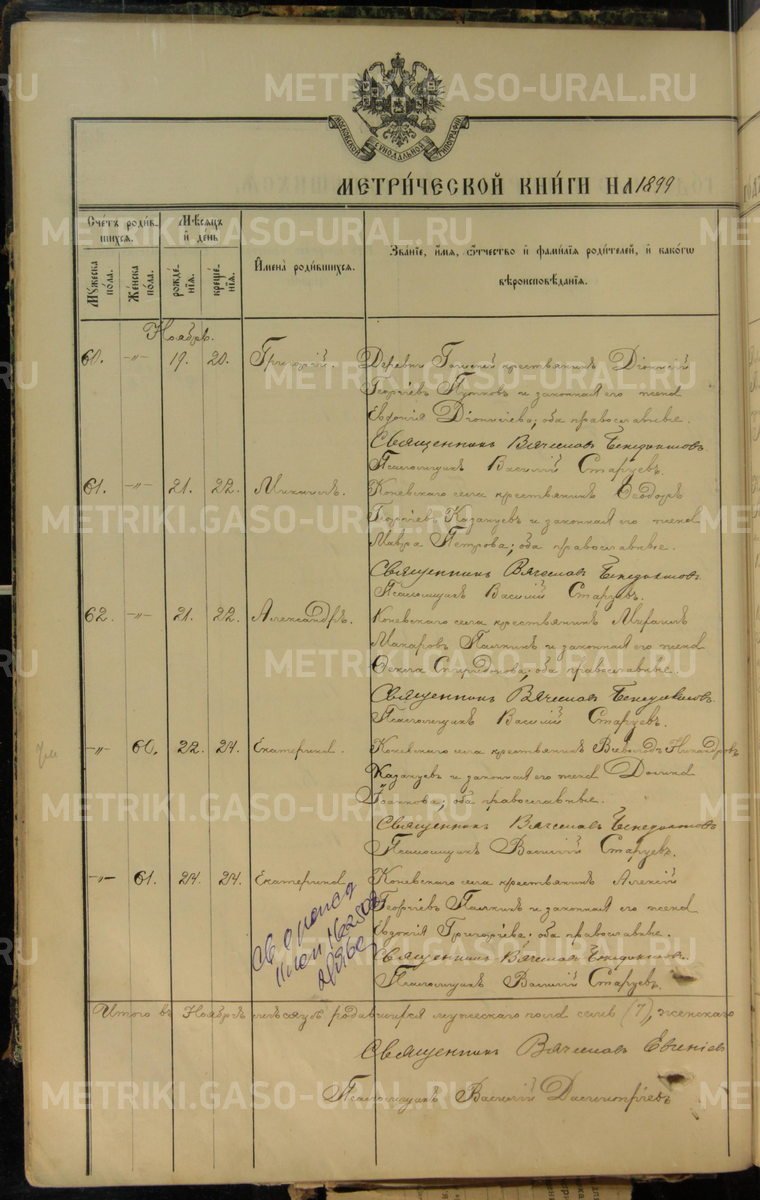 METRIKI.GASO-URAL.RU
МОСКОВСКОЙ СѴНОДАЛЬНОЙ ТИПОГРАФІИ
МЕТРИ́ЧЕСКОЙ КНИ́ГИ НА 1899
Сче́тъ роди́вшихся.
Мѣ́сяцъ и҆ де́нь
Му́жеска по́ла.
Же́нска по́ла.
рожде́нїѧ.
креще́нїѧ.
И҆мена̀ роди́вшихсѧ.
Зва́нїе, и҆́мѧ, ѻ҆́тчество и҆ фами́лїѧ роди́телей, и҆ како́гѡ
вѣроисповѣ́данїѧ.
Ноябрь.
60. -"- 19. 20. Григорій. Деревни крестьянинъ Діонисій
Георгіевъ и законная его жена
Евдокія Діонисіева; оба православные.
Священникъ Вячеславъ
Псаломщикъ Василій Старцевъ.
61. -"- 21. 22. Михаилъ. Коневскаго села крестьянинъ Ѳеодоръ
Георгіевъ Казанцевъ и законная его жена
Мавра Петрова; оба православные.
Священникъ Вячеславъ
Псаломщикъ Василій Старцевъ.
62. -"- 21. 22. Александръ. Коневскаго села крестьянинъ
Макаровъ Палкинъ и законная его жена
Ѳекла Спиридонова; оба православные.
Священникъ Вячеславъ
Псаломщикъ Василій Старцевъ.
-"- 60. 22. 24. Екатерина. Коневскаго села крестьянинъ Всеволодъ Никандровъ
Казанцевъ и законная его жена
Іоаннова; оба православные.
Священникъ Вячеславъ
Псаломщикъ Василій Старцевъ.
-"- 61. 24. 24. Екатерина. Коневскаго села крестьянинъ Алексій
Георгіевъ Палкинъ и законная его жена
Евдокія Григорьева; оба православные.
Священникъ Вячеславъ
Псаломщикъ Василій Старцевъ.
Итого въ Ноябрѣ мѣсяцѣ родившихся мужескаго пола семь (7), женскаго
Священникъ Вячеславъ Евгеніев
Псаломщикъ Василій Димитріевъ